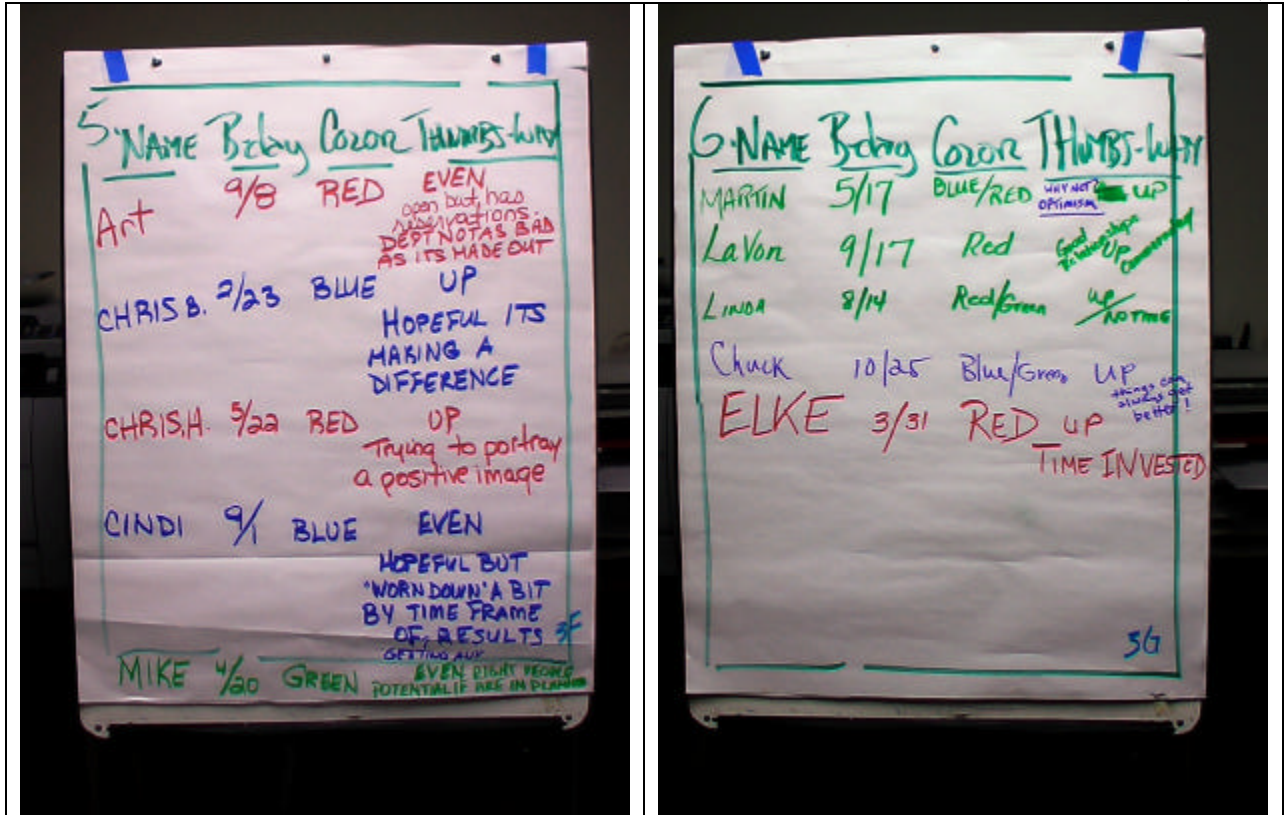 5. NAME Bday COLOR THUMBS-WHY
Art 9/8 RED EVEN
open but, has
reservations.
DEPT NOT AS BAD
AS ITS MADE OUT
CHRIS B. 2/23 BLUE UP
HOPEFUL ITS
MAKING A
DIFFERENCE
CHRIS.H. 5/22 RED UP
Trying to portray
a positive image
CINDI 9/1 BLUE EVEN
HOPEFUL BUT
"WORN DOWN" A BIT
BY TIME FRAME
OF, RESULTS
GETTING
3F
MIKE 4/20 GREEN EVEN RIGHT PEOPLE
POTENTIAL IF ARE IN
6. NAME Bday COLOR THUMBS-WHY
MARTIN 5/17 BLUE/RED WHY NOT? UP
OPTIMISM
LaVon 9/17 Red Good
Relationships
UP
LINDA 8/14 Red/Green up/
NO TIME
Chuck 10/25 Blue/Green UP
things can
always get
better!
ELKE 3/31 RED UP
TIME INVESTED
3G